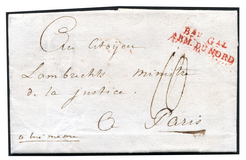 Au Citoyen
BAU. GAL.
ARM. DU NORD
Lambrechts ministre
de la justice.
10
A Paris
a lui meme